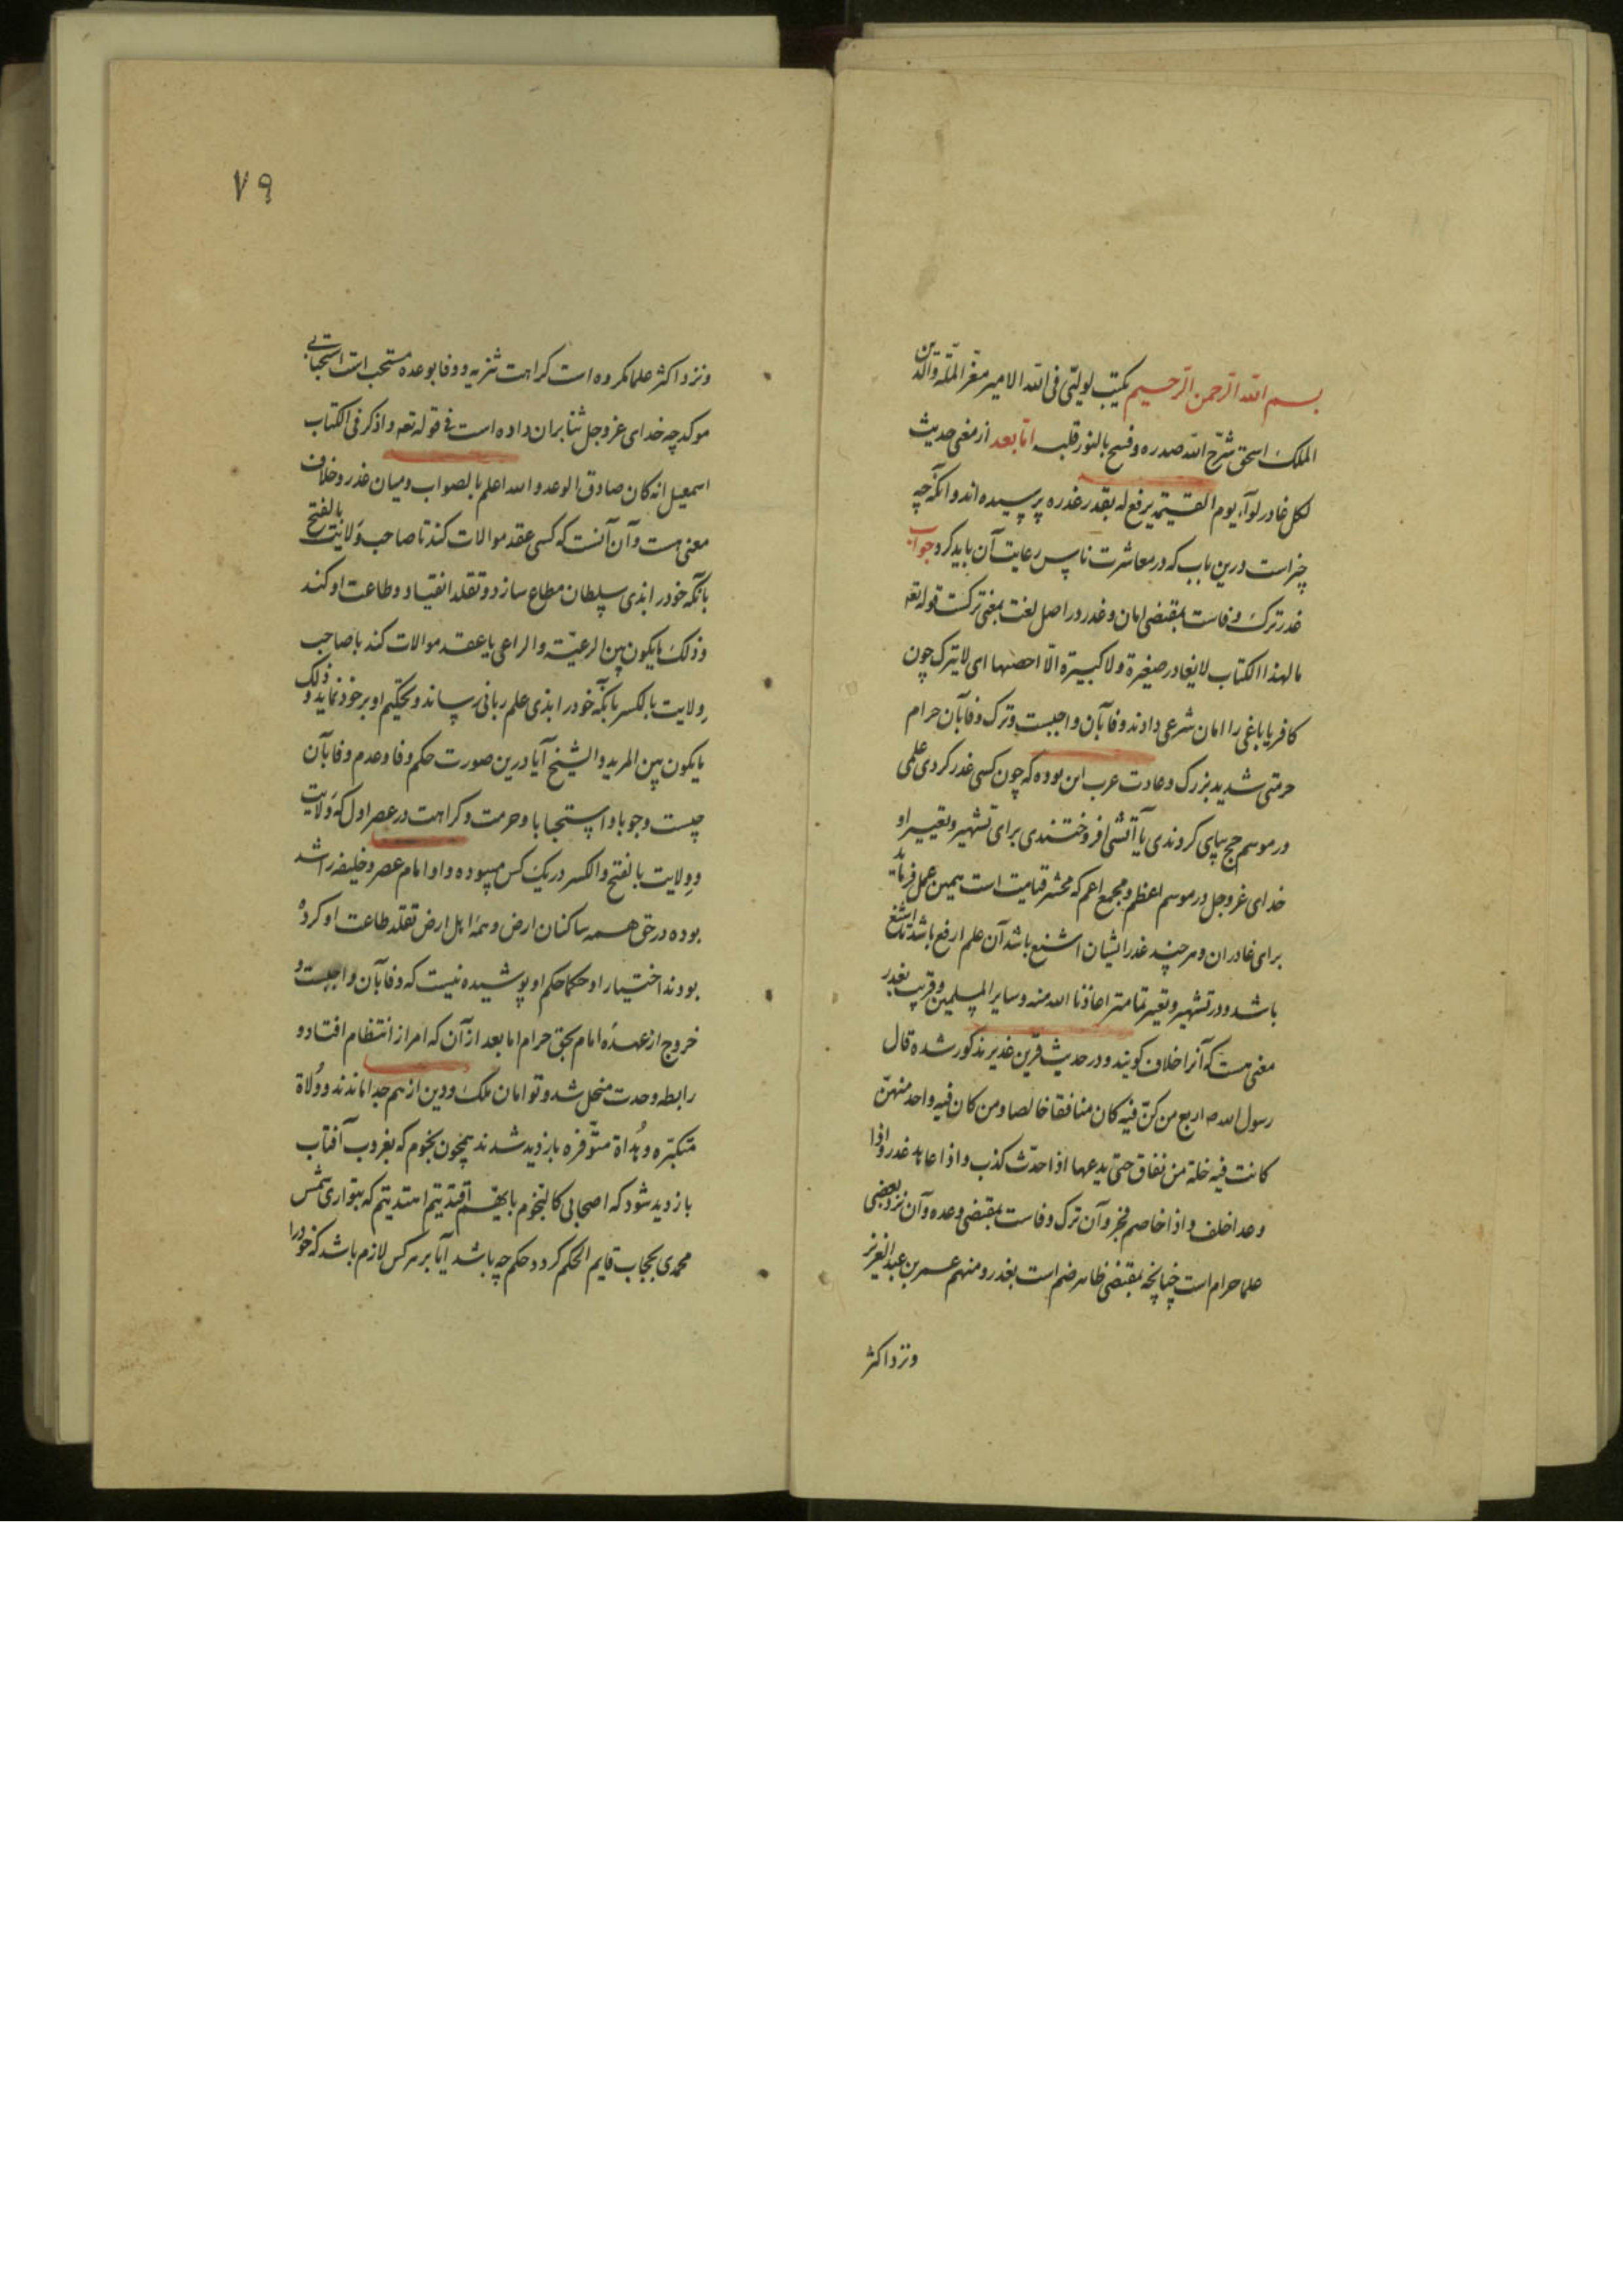 بسم الله الرحمن الرحیم یکتب لولیّی فی الله الامیر معزّ الملّه والدّین
الملک اسحق شرّح الله صدره وفسح بالنور قلبه امّا بعد از معنی حدیث
لکل غادر لوآء یوم القیمة یرفع له بقدر غدره پرسیده اند و آنکه چه
چیز است درین باب که در معاشرت ناس رعایت آن باید کرد جواب
غدر ترک وفاست بمقتضی امان و غدر در اصل لغت بمعنی ترکست قوله تعه
مالهذا الکتاب لایغادر صغیرة ولا کبیرة الّا احصیها ای لایترک چون
کافر یا باغی را امان شرعی دادند وفا بآن واجبست و ترک وفا بآن حرام
حرمتی شدید بزرک و عادت عرب این بوده که چون کسی غدر کردی علمی
در موسم حج بپای کردندی یا آتشی افروختندی برای تشهیر و تعییر او
خدای عزوجل در موسم اعظم و مجمع اعم که محشر قیامت است همین عمل فرماید
برای غادران و هر چند غدر ایشان اشنع باشد آن علم ارفع باشد تا اشنع
باشد و در تشهیر و تعییر تمامتر اعاذنا الله منه وسایر المسلمین و قریب بغدر
معنی هست که آنرا خلاف کویند و در حدیث قرین غدیر مذکور شده قال
رسول الله صه اربع من کنّ فیه کان منافقا خالصا ومن کان فیه واحد منهنّ
کانت فیه خلة من نفاق حتی یدعها اذا حدّث کذب واذا عاهد غدر واذا
وعد اخلف واذا خاصم فجر و آن ترک وفاست بمقتضی وعده و آن نزد بعضی
علما حرام است چنانچه بمقتضی ظاهر ضم است بغدر و منهم عمر بن عبد العزیز
و نزد اکثر
٧٩
و نزد اکثر علما مکروه است کراهت تنزیه و وفا بوعده مستحب است استحبابی
موکد چه خدای عزوجل ثنا بران داده است فی قوله تعه واذکر فی الکتاب
اسمعیل انه کان صادق الوعد والله اعلم بالصواب و میان غدر و خلاف
معنی هست و آن آنست که کسی عقد موالات کند تا صاحب وَلایت بالفتح
بآنکه خود را بذی سلطان مطاع سازد و تقلد انقیاد و طاعت او کند
وذلک مایکون بین الرعیّة والراعی یا عقد موالات کند با صاحب
وِلایت بالکسر بآنکه خود را بذی علم ربانی رساند و تحکیم او بر خود نماید وذلک
مایکون بین المرید والشیخ آیا درین صورت حکم وفا و عدم وفا بآن
چیست وجوبا و استحبابا و حرمت و کراهت در عصر اول که وَلایت
و وِلایت بالفتح والکسر در یک کس میبوده و او امام عصر و خلیفه راشد
بوده در حق همه ساکنان ارض و همهٔ اهل ارض تقلد طاعت او کرده
بودند اختیار او حکما حکم او پوشیده نیست که وفا بآن واجبست و
خروج از عهدهٔ امام بحق حرام اما بعد از آن که امر از انتظام افتاد و
رابطه وحدت منحل شد و توامان ملک و دین از هم جدا ماندند و وُلاة
متکبّره و هُداة متوّفره بازدید شدند همچون نجوم که بغروب آفتاب
بازدید شود که اصحابی کالنجوم بایهم اقتدیتم اهتدیتم که بتواری شمس
محمدی بحجاب قایم الحکم کردد حکم چه باشد آیا بر هر کس لازم باشد که خود را